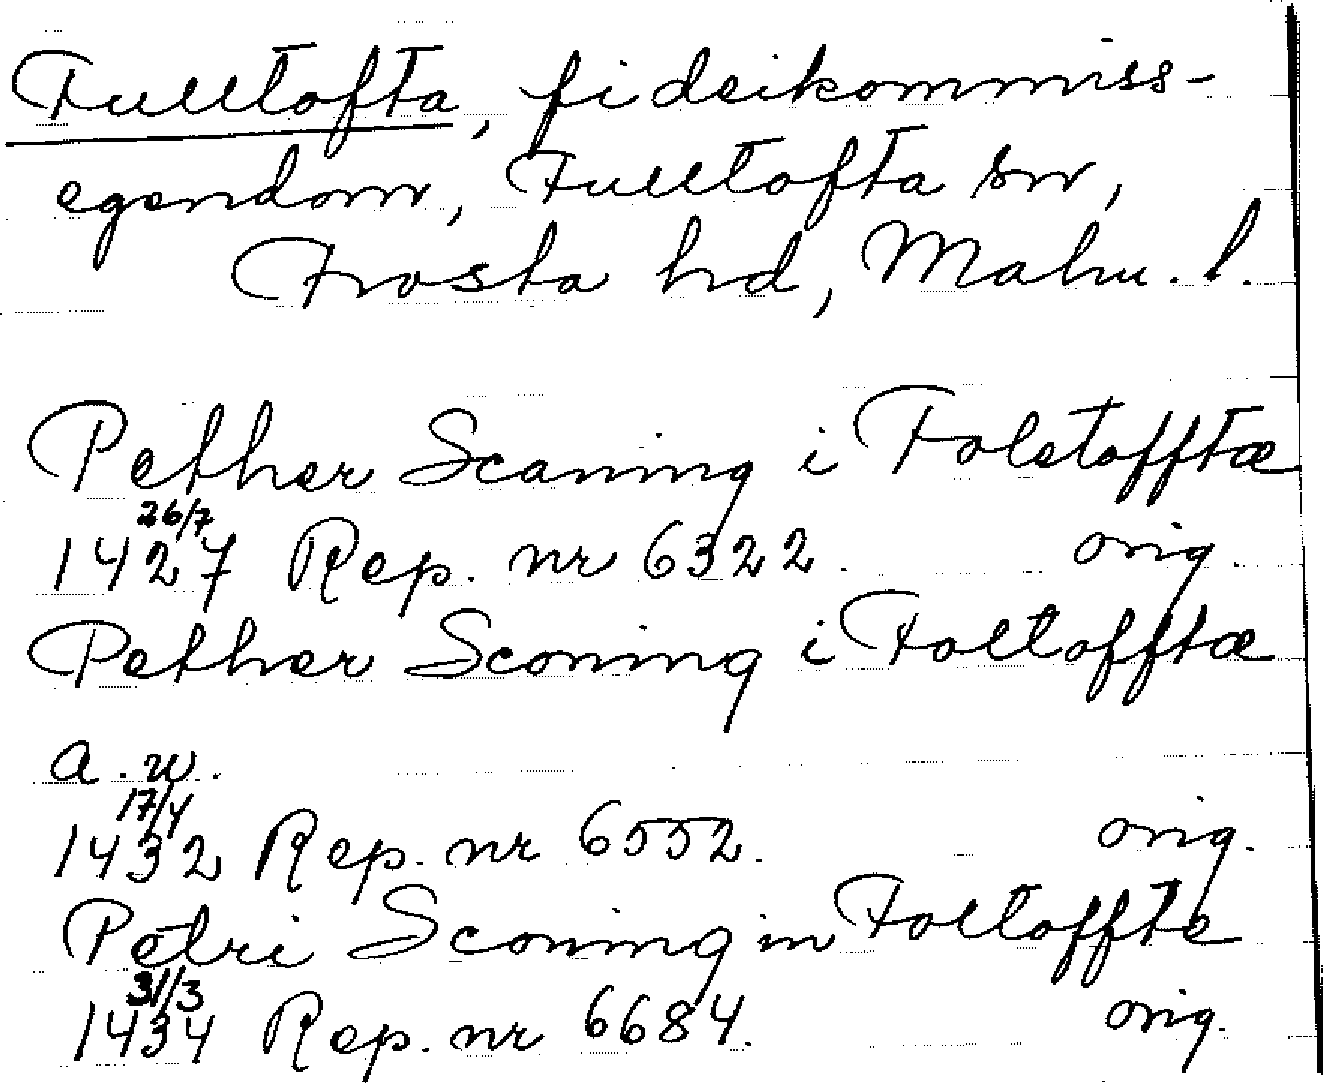 Fulltofta, fideikommiss-
egendom, Fulltofta sn,
Frosta hd, Malm. l.
Pether Scaning i Foletofftæ
26/7
1427 Rep. nr 6322. orig.
Pether Sconing i Foltofftæ
a. w.
17/4
1432 Rep. nr 6552. orig.
Petri Sconing in Foltoffte
31/3
1434 Rep. nr 6684. orig.